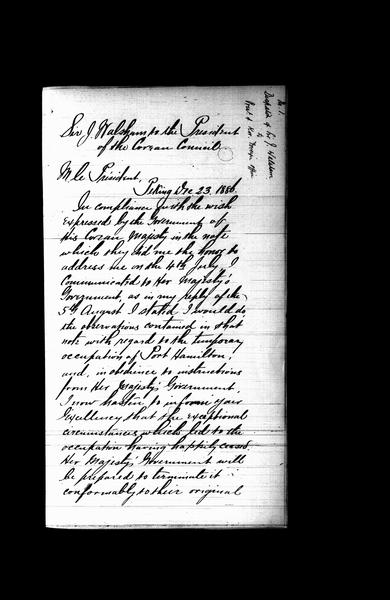 Sir J. Walsham to the President
of the Corean Council.
M. le Président,
Peking Dec 23, 1886.
In compliance with the wish
expressed by the Government of
His Corean Majesty in the note
which they did me the honor to
address me on the 4th July, I
communicated to Her Majesty's
Government, as in my reply of the
5th August I stated I would do
the observations contained in that
note with regard to the temporary
occupation of Port Hamilton,
and, in obedience to instructions
from Her Majesty's Government,
I now hasten to inform your
Excellency that the exceptional
circumstances which led to the
occupation having happily ceased
Her Majesty's Government will
be prepared to terminate it
conformably to their original
No 1.
Despatch of Sir J. Walsham
to
Prest of Kor. Foreign Office